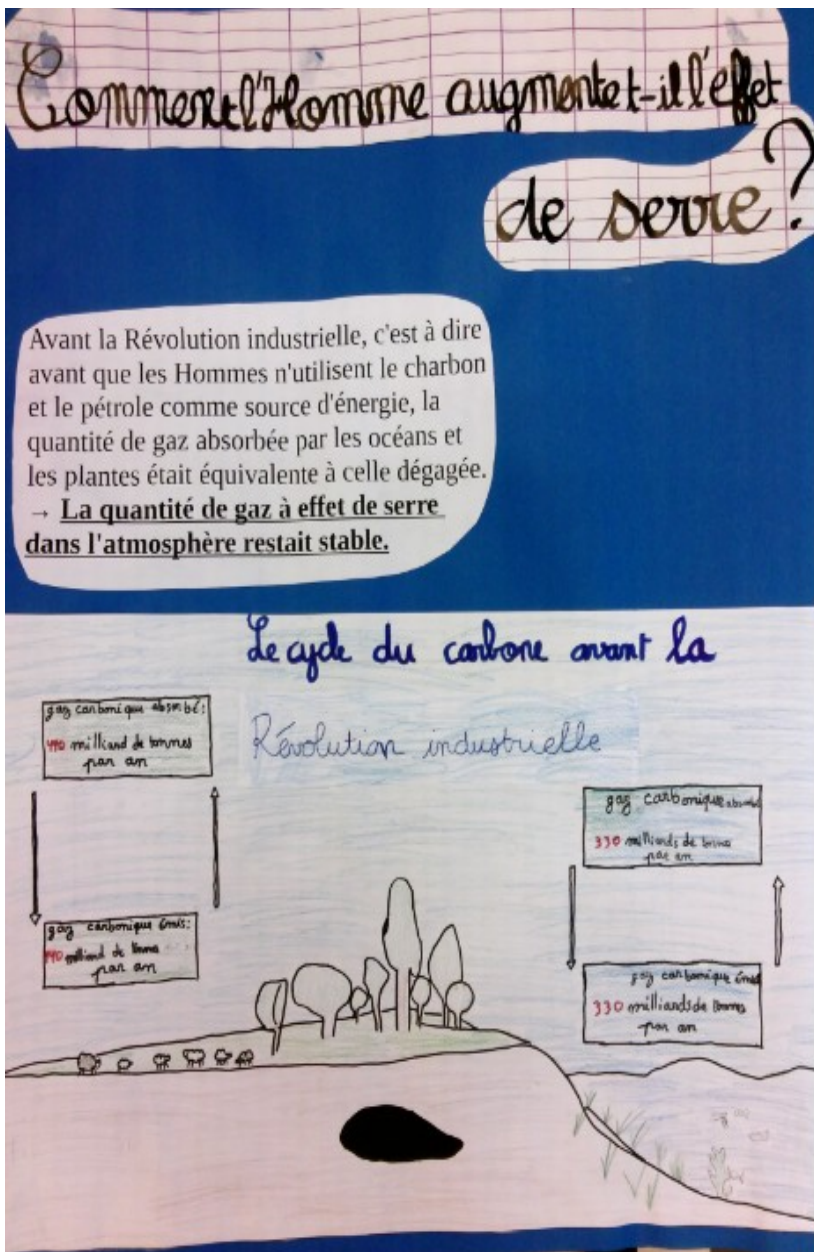 Comment l'Homme augmente t-il l'effet
de serre ?
Avant la Révolution industrielle, c'est à dire
avant que les Hommes n'utilisent le charbon
et le pétrole comme source d'énergie, la
quantité de gaz absorbée par les océans et
les plantes était équivalente à celle dégagée.
→ La quantité de gaz à effet de serre
dans l'atmosphère restait stable.
Le cycle du carbone avant la
Révolution industrielle
gaz carbonique absorbé :
440 milliard de tonnes
par an
gaz carbonique émis :
440 milliard de tonnes
par an
gaz carbonique absorbé
330 milliards de tonnes
par an
gaz carbonique émis
330 milliards de tonnes
par an